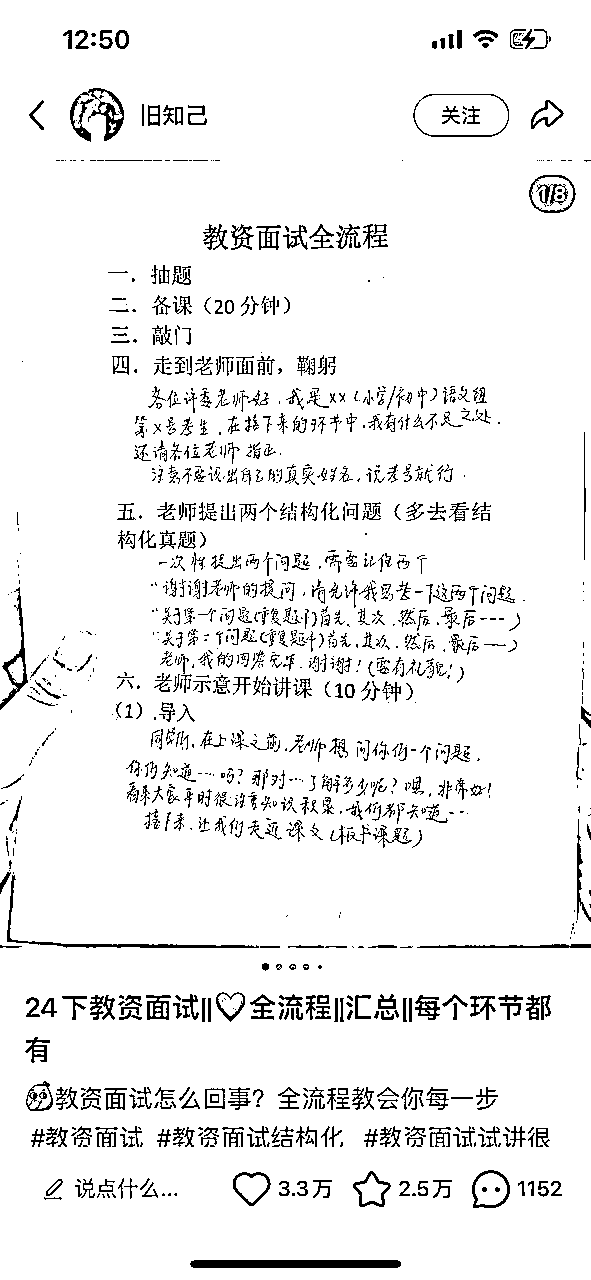 12:50
旧知己
关注
1/8
教资面试全流程
一．抽题
二．备课（20分钟）
三．敲门
四．走到老师面前，鞠躬
各位评委老师好，我是xx（小学/初中）语文组
第x号考生，在接下来的环节中，我有什么不足之处
还请各位老师指正
注意不要说出自己的真实姓名，说考号就行．
五．老师提出两个结构化问题（多去看结
构化真题）
一次性提出两个问题，需要记住两个
"谢谢老师的提问，请允许我思考一下这两个问题．
"关于第一个问题(重复题干)首先、其次、然后、最后----)
"关于第二个问题(重复题干)首先、其次、然后、最后----)
老师，我的回答完毕，谢谢！(要有礼貌！)
六．老师示意开始讲课（10分钟）
（1）.导入
同学们，在上课之前，老师想问你们一个问题，
你们知道…吗？那对…了解多少呢？嗯，非常好！
看来大家平时很注意知识积累，我们都知道…
接下来，让我们走近课文(板书课题)
24下教资面试||全流程||汇总||每个环节都
有
教资面试怎么回事？全流程教会你每一步
#教资面试 #教资面试结构化 #教资面试试讲很
说点什么... 3.3万 2.5万 1152